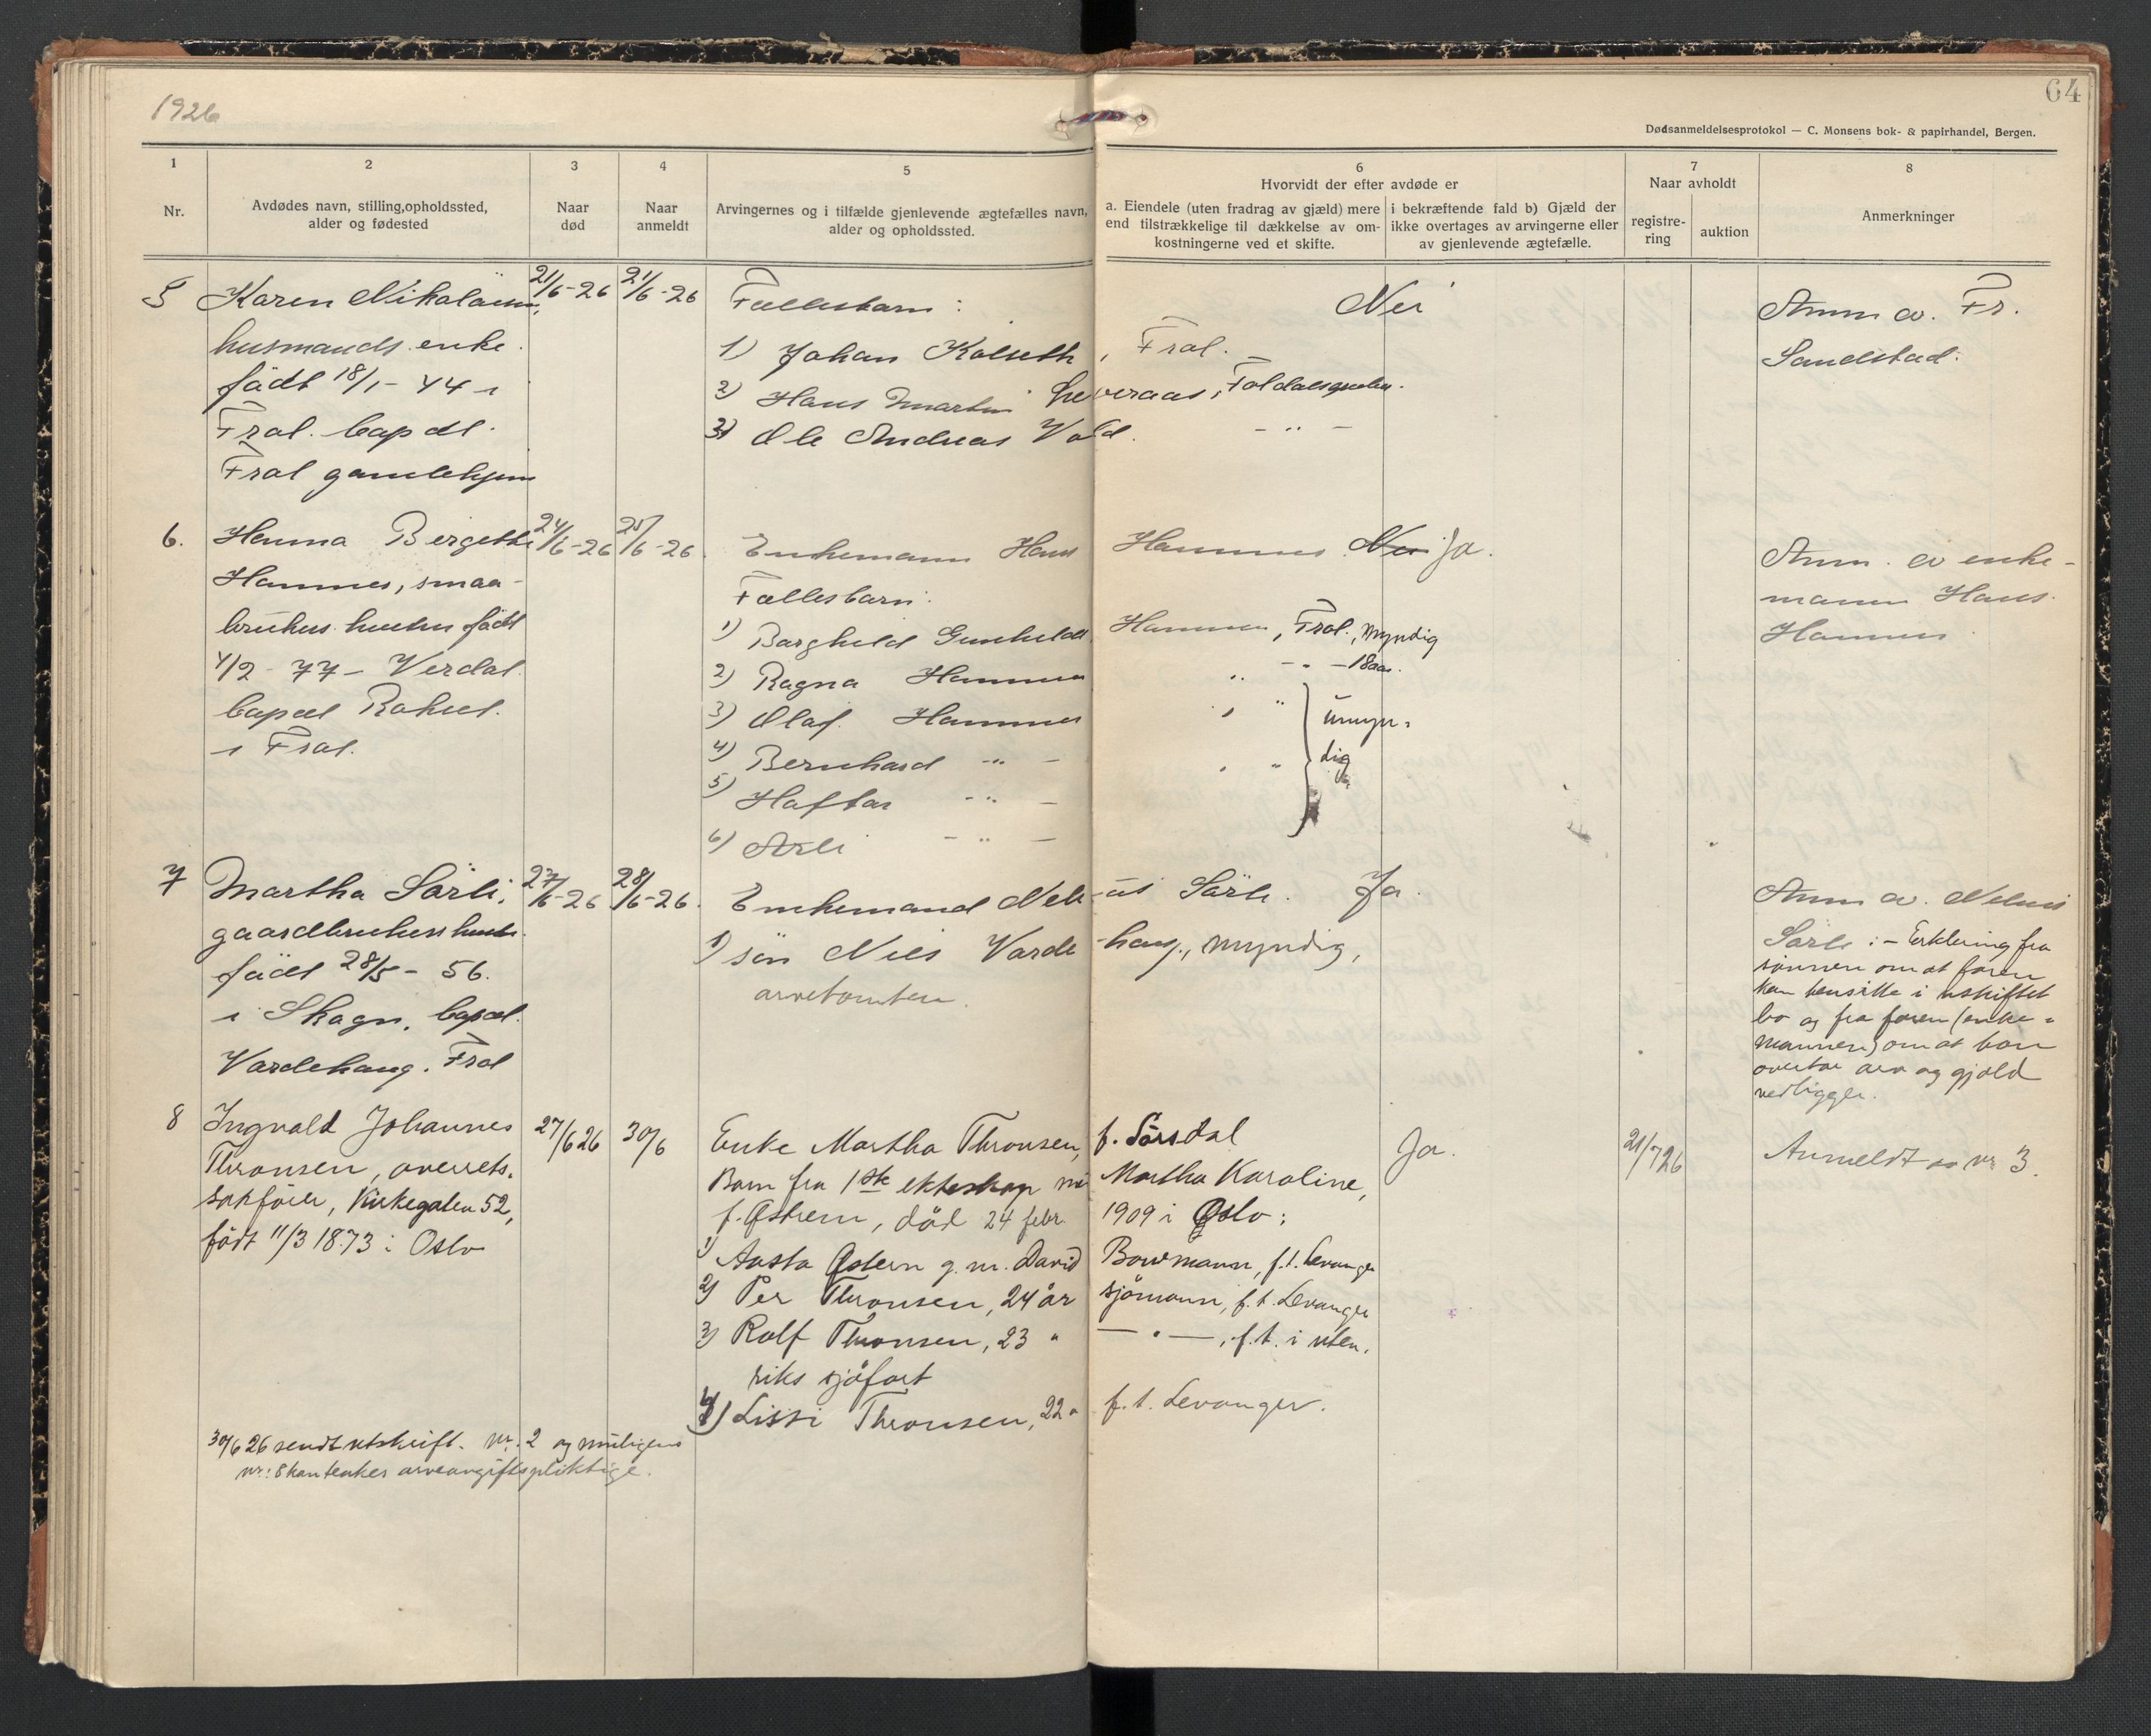 1926
64
Dødsanmeldelsesprotokol — C. Monsens bok- & papirhandel, Bergen.
1
Nr.
2
Avdødes navn, stilling,opholdssted,
alder og fødested
3
Naar
død
4
Naar
anmeldt
5
Arvingernes og i tilfælde gjenlevende ægtefælles navn,
alder og opholdssted.
6
Hvorvidt der efter avdøde er
a. Eiendele (uten fradrag av gjæld) mere
end tilstrækkelige til dækkelse av om-
kostningerne ved et skifte.
i bekræftende fald b) Gjæld der
ikke overtages av arvingerne eller
av gjenlevende ægtefælle.
7
Naar avholdt
registre-
ring
auktion
8
Anmerkninger
5
Karen Nikolaisen,
husmands enke.
född 18/1 - 44 i
Frol. bopæl.
Frol gamlehjem
21/6-26
21/6-26
Fællesbarn:
1) Johan Kolseth, Frol.
2) Hans Martin Leveraas, Foldalsgruben.
3) Ole Andreas Vold. - " -
Nei
Anm av. Fr.
Sandstad.
6.
Hanna Bergette
Hammer, smaa-
brukers hustru född
4/2 - 77 - Verdal.
bopæl
i Frol.
24/6-26
25/6-26.
Enkemann Hans Hammer.
Fællesbarn:
1) Borghild Gunhilda Hammer, Frol., myndig
2) Ragna Hammer " - " - 18 aar.
3) Olaf. Hammer " "
4) Bernhard - " - " "
5) Haftor - " -
6) Arli - " -
umyn-
dig
Nei Ja.
Anm. av enke-
mann Hans
Hammer
7
Martha Sörli,
gaardbrukers hustr.
född 28/5 - 56.
i Skogn, bopæl.
Vardehaug. Frol
27/6-26
28/6-26.
Enkemand Nelius Sörli.
1) sön Nils Vardehaug., myndig,
arvetomten.
Ja.
Anm av. Nelius
Sörli: - Erklæring fra
sönnen om at faren
kan hensitte i uskiftet
bo og fra faren (enke-
mannen) om at han
overtar arv og gjeld
vedligger.
8
Ingvald Johannes
Thronsen, overrets-
sakförer, Kirkegaten 52,
född 11/3 1873 i Oslo
27/6 26
30/6
Enke Martha Thronsen, f. Sörsdal
Barn fra 1ste ekteskap m. Martha Karoline,
f. Östrem, död 24 febr. 1909 i Oslo:
1) Aasta Östern g. m. David Bowmann, f. t. Levanger
2) Per Thronsen, 24 år sjömann, f. t. Levanger
3) Rolf Thronsen, 23 " — " —, f. t. i uten-
riks sjöfart
4) Lissi Thronsen, 22 " f. t. Levanger.
Ja.
21/7 26
Anmeldt av nr 3.
30/6 26 sendt utskrift. Nr. 2 og muligens
nr. 8 kan tenkes arveavgiftspliktige.